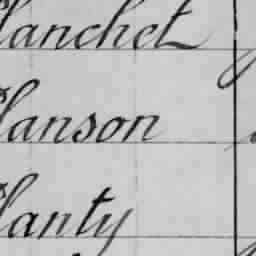 lanchet
lanson
lanty